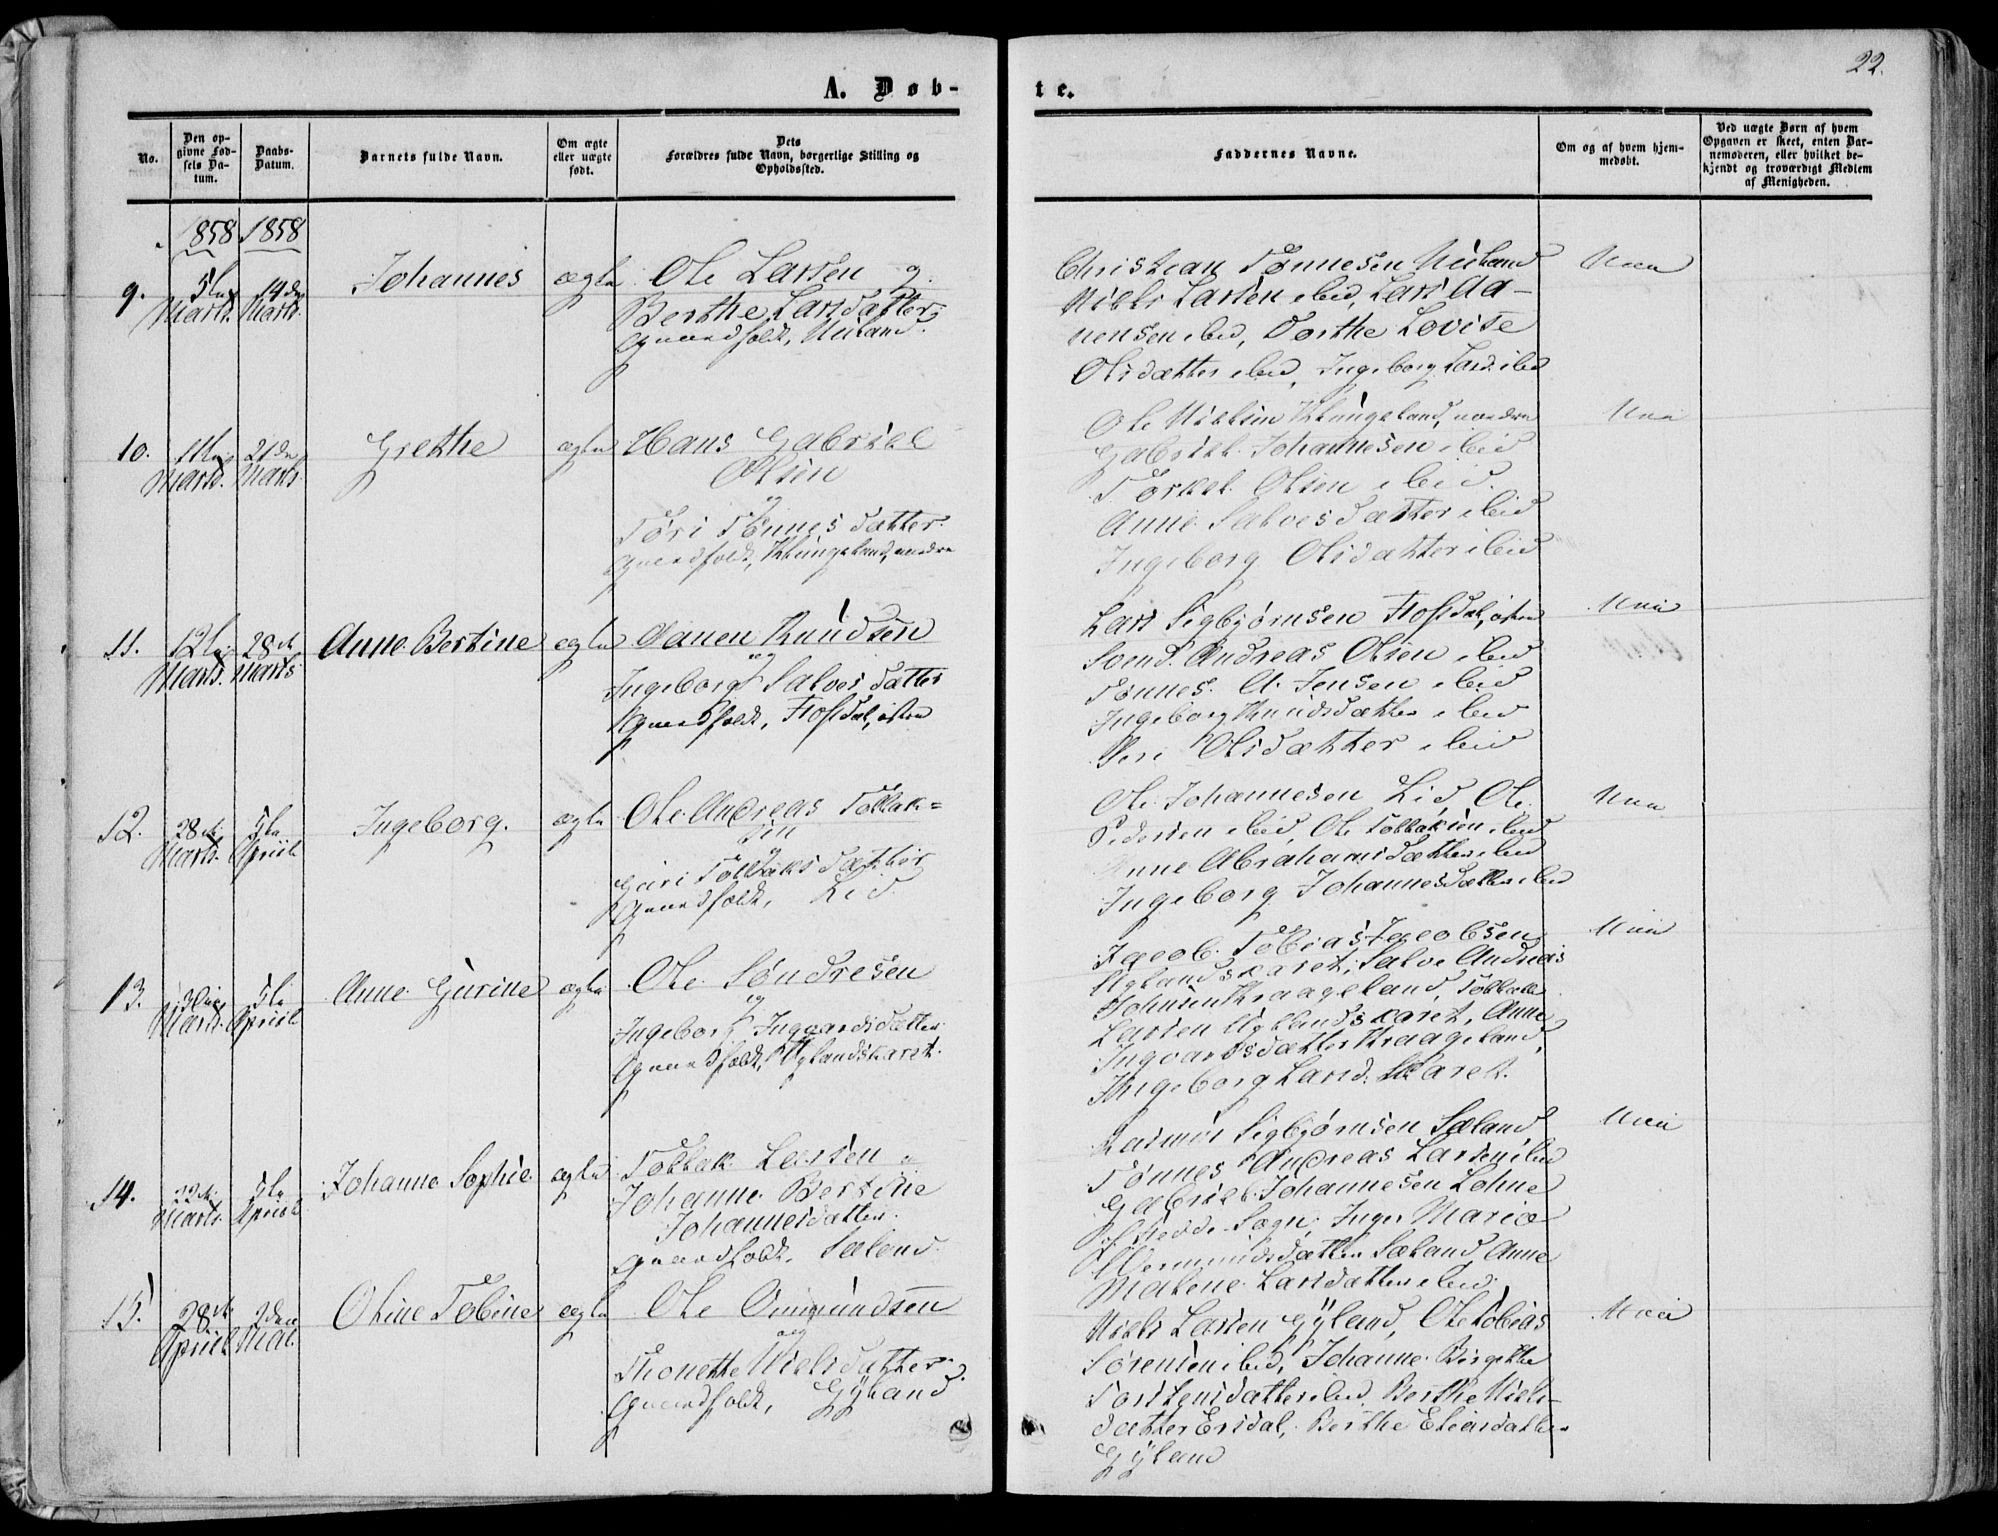 22.
A. Døb-
te.
No.
Den op-
givne Fød-
sels Da-
tum.
Daabs-
Datum.
Barnets fulde Navn.
Om ægte
eller uægte
født.
Dets
Forældres fulde Navn, borgerlige Stilling og
Opholdssted.
Faddernes Navne.
Om og af hvem hjem-
medøbt.
Ved uægte Børn af hvem
Opgaven er skeet, enten Bar-
nemoderen, eller hvilket be-
kjendt og troværdigt Medlem
af Menigheden.
1858 1858
9.
5te
Marts.
14de
Marts.
Johannes
ægte
Ole Larsen og
Berthe Larsdatter,
Gaardfolk, Meiland.
Christian Tønnesen Meiland
Niels Larsen ibid, Lars Aa-
nensen ibid, Dorthe Lovise
Olsdatter ibid, Ingeborg Larsd. ibid
Nei
10.
11te
Marts.
21de
Marts.
Grethe
ægte
Hans Gabriel
Olsen
og
Tøri Tønnesdatter.
Gaardfolk, Klungeland, nedre
Ole Nielsen Klungeland, nedre
Gabriel Johannesen ibid
Torkel Olsen ibid.
Anne Salvesdatter ibid
Ingeborg Olsdatter ibid
Nei
11.
12te
Marts.
28de
Marts
Anne Bertine
ægte
Aanen Knudsen
og
Ingeborg Salvesdatter
Gaardfolk, Flosdal, østre
Lars Sigbjørnsen Flosdal, østre
Svend Andreas Olsen ibid
Tønnes A. Jensen ibid
Ingeborg Knudsdatter ibid
Olsdatter ibid
Nei
12.
28de
Marts.
5te
April
Ingeborg.
ægte
Ole Andreas Tollak=
sen
og
Guri Tollaksdatter
Gaardfolk, Lid
Ole Johannesen Lid, Ole
Pedersen ibid, Ole Tollaksen ibid
Anne Abrahamsdatter ibid
Ingeborg Johannesdatter ibid
Nei
13.
Marts.
5te
April
Anne Gurine
ægte
Ole Søndresen
og
Ingeborg Ingvardsdatter
Gaardfolk, Uglandskaret.
Jacob Tobias Jacobsen
Uglandskaret, Salve Andreas
Johnsen Kraageland, Tollak
Larsen Uglandskaret, Anne
Ingvardsdatter Kraageland,
Ingeborg Larsd. Skaret.
Nei
14.
22de
Marts.
5te
April
Johanne Sophie
ægte
Tollak Larsen og
Johanne Bertine
Johannesdatter.
Gaardfolk, Sæland.
Rasmus Sigbjørnsen Sæland
Tønnes Andreas Larsen ibid
Gabriel Johannesen Lohne
Sogn, Inger Marie
Sæland, Anne
Malene Larsdatter ibid.
Nei
15.
28de
April
2den
Mai.
Oline Tobine
ægte
Ole Ommundsen
og
Thonette Nielsdatter.
Gaardfolk, Gyland
Niels Larsen Gyland, Ole Tobias
Sørensen ibid, Johanne Birgitte
Torstensdatter ibid, Berthe Niels-
datter Ersdal, Berthe Eliasdatter
Gyland
Nei